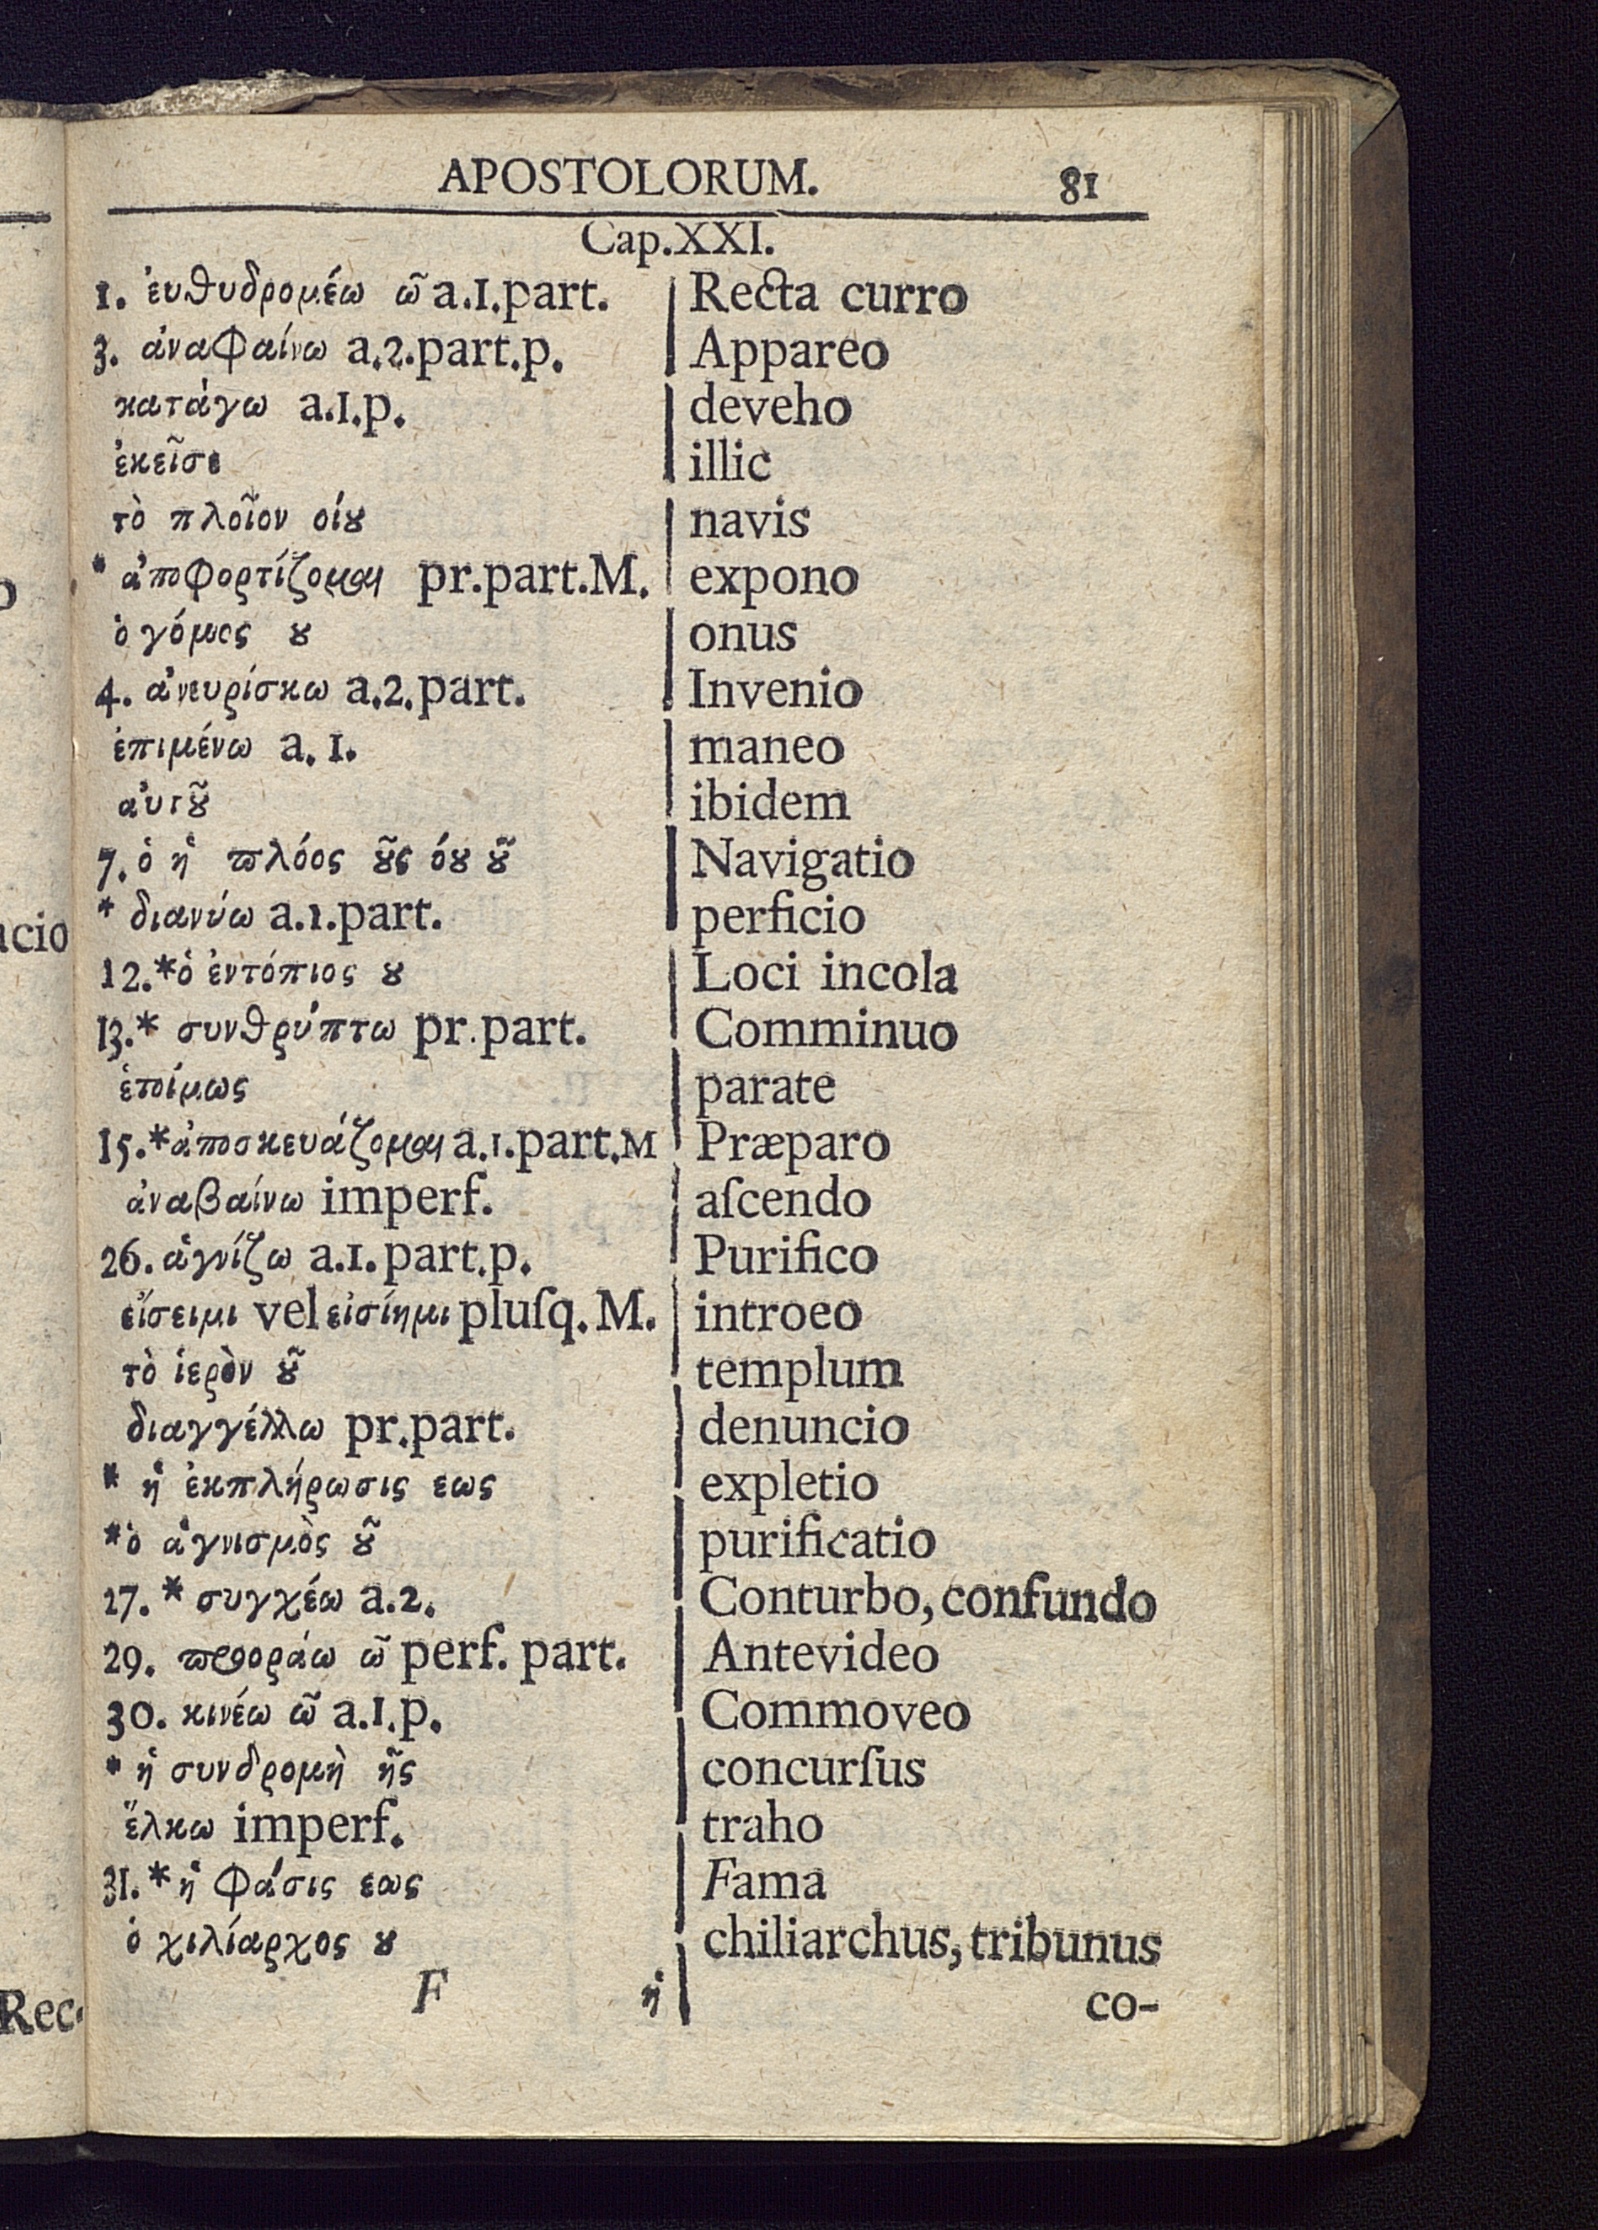 APOSTOLORUM. 81
Cap.XXI.
1. ἐυθυδρομέω ῶ a.1.part. Recta curro
3. ἀναφαίνω a.2.part.p. Appareo
κατάγω a.1.p. deveho
ἐκεῖσε illic
τὸ πλοῖον οίȣ navis
* ἀποφορτίζομαι pr.part.M. expono
ὁ γόμος ȣ onus
4. ἀνευρίσκω a.2.part. Invenio
ἐπιμένω a. 1. maneo
ἀυτȣ͂ ibidem
7. ὁ ἡ πλόος ȣ͂ς όȣ ȣ͂ Navigatio
* διανύω a.1.part. perficio
12.*ὁ ἐντόπιος ȣ Loci incola
13.* συνθρύπτω pr.part. Comminuo
ἑτοίμως parate
15.*ἀποσκευάζομαι a.1.part.M Præparo
ἀναβαίνω imperf. aſcendo
26. ἁγνίζω a.1.part.p. Purifico
εἴσειμι vel εἰσίημι pluſq. M. introeo
τὸ ἱερὸν ȣ͂ templum
διαγγέλλω pr.part. denuncio
* ἡ ἐκπλήρωσις εως expletio
*ὁ ἁγνισμὸς ȣ͂ purificatio
27. * συγχέω a.2. Conturbo, confundo
29. προοράω ῶ perf. part. Antevideo
30. κινέω ῶ a.1.p. Commoveo
* ἡ συνδρομὴ ῆς concurſus
ἕλκω imperf. traho
31. * ἡ φάσις εως Fama
ὁ χιλίαρχος ȣ chiliarchus, tribunus
F ἡ co-